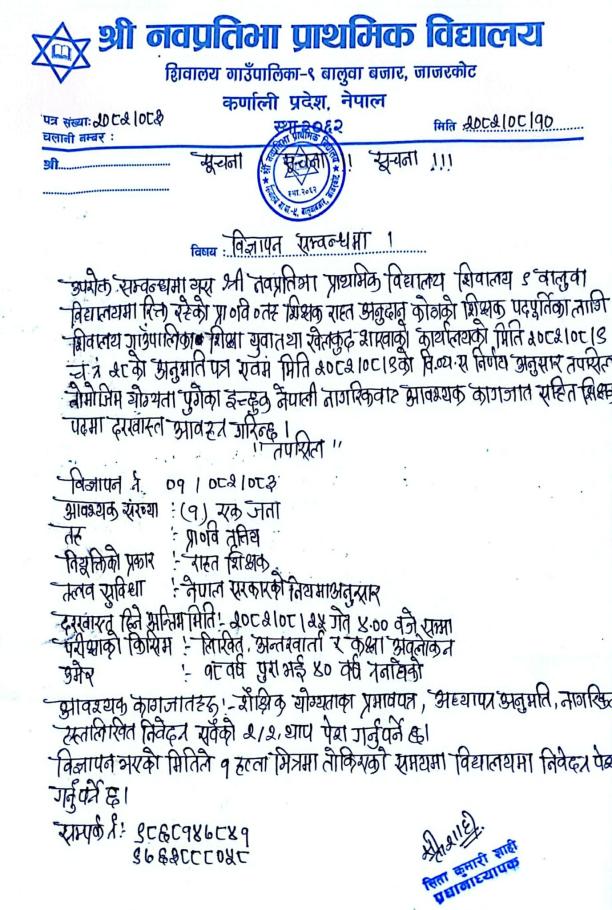 श्री नवप्रतिभा प्राथमिक विद्यालय
शिवालय गाउँपालिका-९ बालुवा बजार, जाजरकोट
कर्णाली प्रदेश, नेपाल
स्था २०६२
पत्र संख्याः २०८२/०८३
मिति २०८२/०८/१०
चलानी नम्बर :
श्री
सूचना सूचना !! सूचना !!!
श्री नवप्रतिभा प्राथमिक विद्यालय
स्था.२०६२
विषय : विज्ञापन सम्वन्धमा ।
उपरोक्त सम्वन्धमा यस श्री नवप्रतिभा प्राथमिक विद्यालय शिवालय ९ वालुवा
विद्यालयमा रिक्त रहेको प्रा०वि०तह शिक्षक राहत अनुदान कोटाको शिक्षक पदपूर्तिका लागि
शिवालय गाउँपालिका शिक्षा युवा तथा खेलकुद शाखाको कार्यालयको मिति २०८२/०८/९
च.न २८को अनुमति पत्र एवंम मिति २०८२/०८/९को वि.व्य.स निर्णय अनुसार तपसिल
वोमोजिम योग्यता पुगेका इच्छुक नेपाली नागरिकवाट आवश्यक कागजात सहित शिक्षक
पदमा दरखास्त आवहन गरिन्छ।
"तपसिल"
विज्ञापन नं. ०१/०८२/०८३
आवश्यक संख्या :(१) एक जना
तह :- प्रा०वि तृतिय
नियुक्तिको प्रकार :- राहत शिक्षक
तलव सुविधा :- नेपाल सरकारको नियमाअनुसार
दरखास्त दिने अन्तिम मिति:- २०८२/०८/२५ गते ४:०० वजे सम्म
परीक्षाको किसिम :- लिखित, अन्तरवार्ता र कक्षा अवलोकन
उमेर :- १८ वर्ष पुरा भई ४० वर्ष ननाघेको
आवश्यक कागजातहरु:- शैक्षिक योग्यताका प्रमाणपत्र, अध्यापन अनुमति, नागरिक
हस्तलिखित निवेदन सवैको २/२ थाप पेश गर्नुपर्ने छ।
विज्ञापन भएको मितिले १ हप्ता भित्रमा तोकिएको समयमा विद्यालयमा निवेदन पेश
गर्नु पर्ने छ।
सम्पर्क नं:- ९८६८१४६८४१
सिता कुमारी शाही
प्रधानाध्यापक